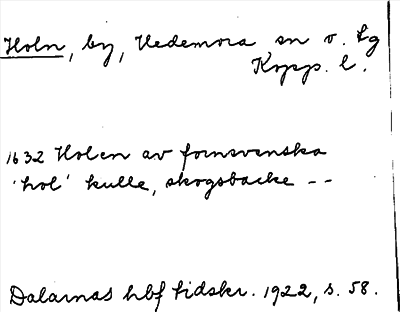 Holn, by, Hedemora sn v. Lg
Kopp. l.
1632 Holen av fornsvenska
'hol' kulle, skogsbacke --
Dalarnas hbf tidskr. 1922, s. 58.